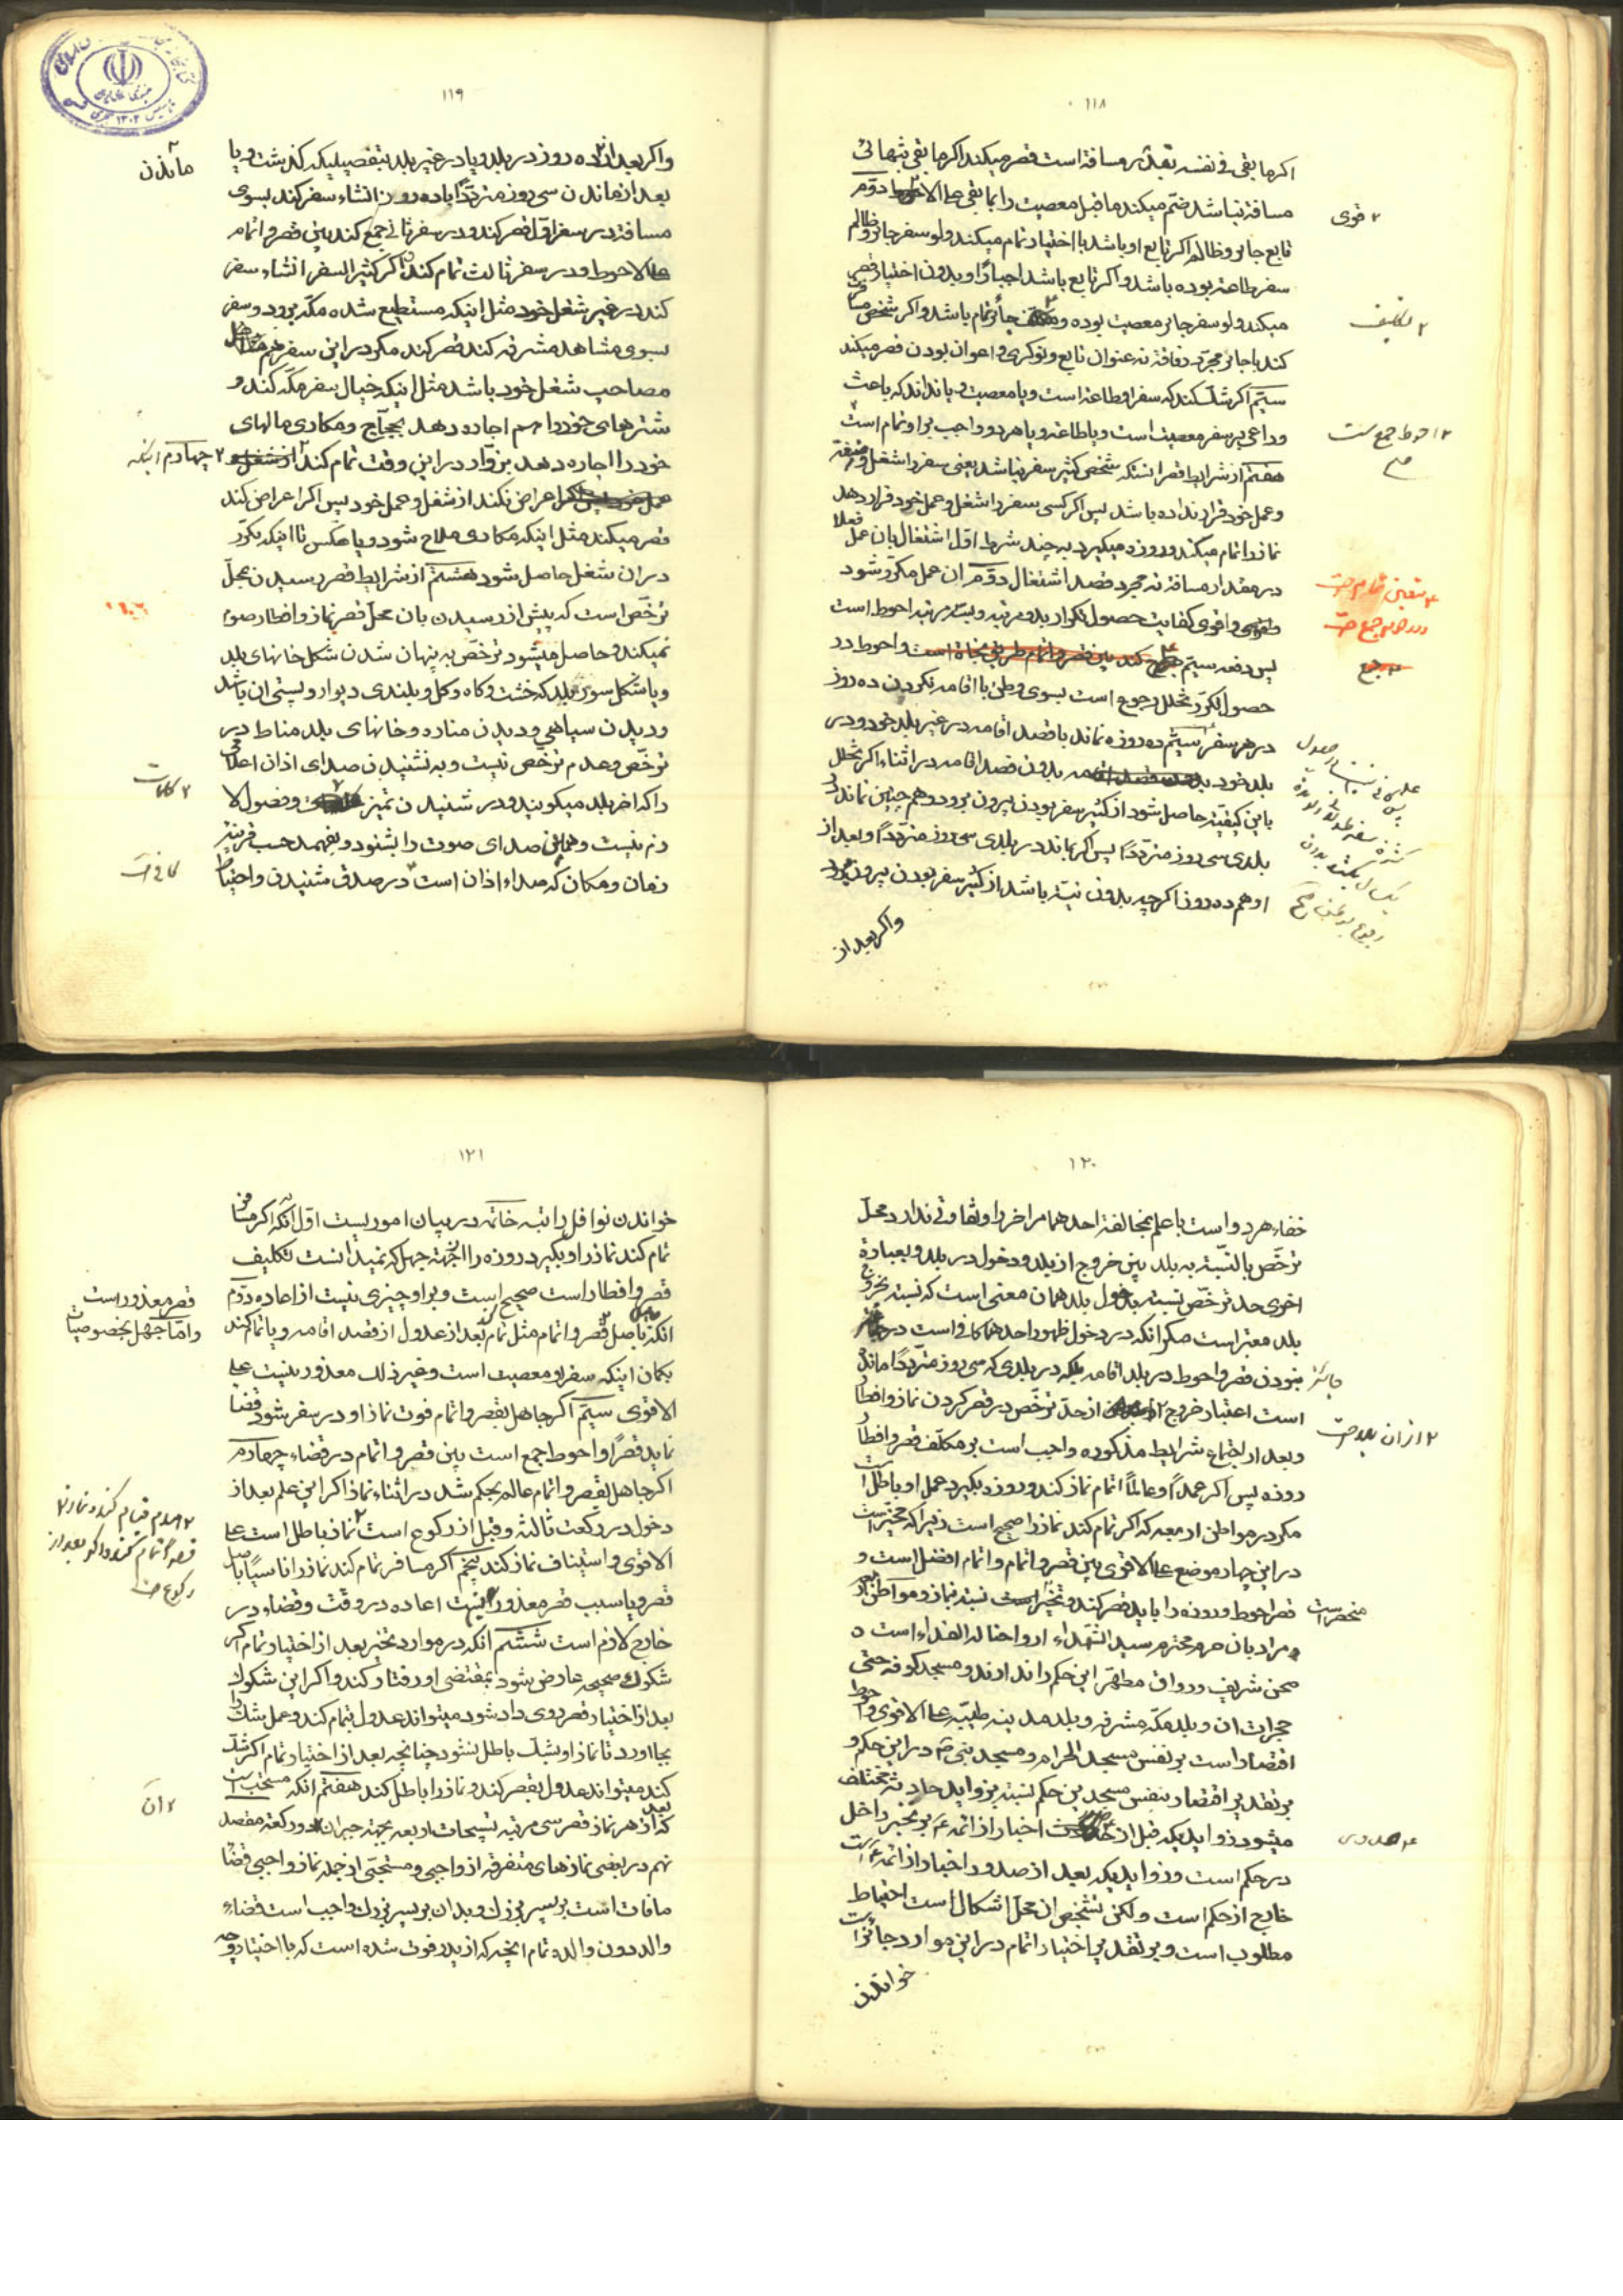 ۱۱۸
اکر ما بقی فی نفسه بقدر مسافة است قصر میکند اکر ما بقی بتنهائی
مسافة نباشد ضم میکند ما قبل معصیت را بما بقی علی الا دوم
۲ قوی
تابع جائر و ظالم اکر تابع او باشد با اختیار تمام میکند ولو سفر جائر و ظالم
سفر طاعة بوده باشد و اکر تابع باشد اجبارًا و بدون اختیار قصر
میکند ولو سفر جائر معصیت بوده و جائر تمام باشد و اکر شخص
۲ تکلیف
کند با جائر بمجرد رفاقة نه عنوان تابع و نوکری و اعوان بودن قصر میکند
سیم اکر شک کند که سفر او طاعة است و یا معصیت و یا نداند که باعث
و داعی بر سفر معصیت است و یا طاعة و یا هر دو واجب بر او تمام است
۲ احوط جمع است
هفتم از شرایط قصر انستکه شخص کثیر سفر نباشد یعنی سفر را شغل
و عمل خود قرار نداده باشد پس اکر کسی سفر را شغل و عمل خود قرار دهد
نماز را تمام میکند و روزه میکیرد به چند شرط اول اشتغال بان عمل فعلا
در مقدار مسافة نه مجرد قصد اشتغال دوم ان عمل مکرر شود
و اقوی کفایت حصول تکرار بدو مرتبه و سه مرتبه احوط است
پس دفعه سیم جمع کند بین قصر و اتمام است و احوط در
۳ جمع
حصول تکرر تخلل رجوع است بسوی وطن با اقامه نکردن ده روز
در هر سفر سیم ده روزه نماند با قصد اقامه در غیر بلد خود و در
بلد خود بدون قصد اقامه در اثناء اکر تخلل
باین کیفیة حاصل شود از کثیر سفر بودن بیرون برود و هم چنین نماند در
بلدی سی روز مترددًا پس اکر بماند در بلدی سی روز مترددًا و بعد از
او هم ده روز اکر چه بدون نیة باشد از کثیر سفر بودن بیرون
و اکر بعد از
۱۱۹
و اکر بعد از ده روز در بلد و یا در غیر بلد بتفصیلیکه کذشت و یا
ماندن
بعد از ماندن سی روز مترددًا یا ده روز انشاء سفر کند بسوی
مسافة در سفر اول قصر کند و در سفر ثانی جمع کند بین قصر و اتمام
علی الاحوط و در سفر ثالث تمام کند اکر کثیر السفر انشاء سفر
کند در غیر شغل خود مثل اینکه مستطیع شده مکه برود و سفر
بسوی مشاهد مشرفه کند قصر کند مکر در این سفر هم
مصاحب شغل خود باشد مثل اینکه خیال سفر مکه کند و
شترهای خود را هم اجاره دهد بحجاج و مکاری مالهای
خود را اجاره دهد بزوار در این وقت تمام کند
۲ چهارم اینکه
اعراض نکند از شغل و عمل خود پس اکر اعراض کند
قصر میکند مثل اینکه مکاری ملاح شود و یا عکس تا اینکه تکرر
در ان شغل حاصل شود هشتم از شرایط قصر رسیدن بمحل
ترخص است که پیش از رسیدن بان محل قصر نماز و افطار صوم
نمیکند و حاصل میشود ترخص به پنهان شدن شکل خانهای بلد
و یا شکل سور بلد که خشت و کاه و کل و بلندی دیوار و پستی ان باشد
و دیدن سیاهی و دیدن مناره و خانهای بلد مناط در
ترخص و عدم ترخص نیست و به نشنیدن صدای اذان اعلامی
را که اخر بلد میکویند و در شنیدن تمیز و فصول لا
۲ کلمات
زم نیست و همین صدای صوت را بشنود و بفهمد حسب قرینه
زمان و مکان که صداء اذان است در صدق شنیدن و احتیاط
۱۲۰
خفاء هر دو است با علم بمخالفة احدهما مر اخر را و تفاوتی ندارد محل
ترخص بالنسبة به بلد بین خروج از بلد و دخول در بلد و بعبارة
اخری حد ترخص نسبت بدخول بلد همان معنی است که نسبت بخروج
بلد معتبر است مکر انکه در دخول ظهور احدهما کافی است در
نبودن قصر و احوط در بلد اقامه بلکه در بلدی که سی روز مترددًا مانده
جائز
است اعتبار خروج از حد ترخص در قصر کردن نماز و افطار
۲ از ان بلد
و بعد از اجتماع شرایط مذکوره واجب است بر مکلف قصر و افطار
روزه پس اکر عمدًا و عالمًا اتمام نماز کند و روزه بکیرد عمل او باطل است
مکر در مواطن اربعه که اکر تمام کند نماز را صحیح است زیرا که مخیر است
در این چهار موضع علی الاقوی بین قصر و اتمام و اتمام افضل است و
قصر احوط و روزه را باید قصر کند و تخییر نسبت بنماز و مواطن
منحصر است
و مراد بان حرم محترم سید الشهداء ارواحنا له الفداء است
صحن شریف و رواق مطهر این حکم را ندارند و مسجد کوفه حتی
حجرات ان و بلد مکه مشرفه و بلد مدینه طیبه علی الاقوی و احوط
اقتصار است بر نفس مسجد الحرام و مسجد نبی در این حکم و
بر تقدیر اقتصار بنفس مسجدین حکم نسبت بزواید حادثه مختلف
میشود زوایدیکه قبل از اخبار از ائمه بر تخییر داخل
۲ صدور
در حکم است و زوایدیکه بعد از صدور اخبار از ائمه است
خارج از حکم است ولکن تشخیص ان محل اشکال است احتیاط
مطلوب است و بر تقدیر اختیار اتمام در این موارد جائز است
خواندن
۱۲۱
خواندن نوافل راتبه خاتمه در بیان اموریست اول انکه اکر مسافر
تمام کند نماز را و بکیرد روزه را از جهة جهل که نمیدانست تکلیف
قصر و افطار است صحیح است و بر او چیزی نیست از اعاده دوم
قصر معذور است
و اما جهل بخصوصیات
انکه باصل قصر و اتمام مثل تمام بعد از عدول از قصد اقامه و یا تمام کند
بکمان اینکه سفر او معصیت است و غیر ذلک معذور نیست علی
الاقوی سیم اکر جاهل بقصر و اتمام فوت نماز او در سفر شود قضا
نماید قصرًا و احوط جمع است بین قصر و اتمام در قضاء چهارم
اکر جاهل بقصر و اتمام عالم بحکم شد در اثناء نماز اکر این علم بعد از
دخول در رکعت ثالثه و قبل از رکوع است نماز باطل است علی
الاقوی و استیناف نماز کند پنجم اکر مسافر تمام کند نماز را ناسیًا باصل
قصر و یا سبب قصر معذور نیست اعاده در وقت و قضاء در
خارج لازم است ششم انکه در موارد تخییر بعد از اختیار تمام اکر
شکوک صحیحه عارض شود بمقتضی او رفتار کند و اکر این شکوک
بعد از اختیار قصر روی داد شود میتواند عدول بتمام کند و عمل شک را
بجا اورد تا نماز او بشک باطل نشود چنانچه بعد از اختیار تمام اکر شک
کند میتواند عدول بقصر کند و نماز را باطل کند هفتم انکه مستحب است
۲ ان
که بعد از هر نماز قصر سی مرتبه تسبیحات اربعه بجهة جبران دو رکعة مقصد
نهم در بعضی نمازهای متفرقه از واجبی و مستحبی از جمله نماز واجبی قضاء
مافات است بر پسر بزرک و بدان بر پسر بزرک واجب است قضاء
والد دون والده تمام انچه که از پدر فوت شده است که با اختیار